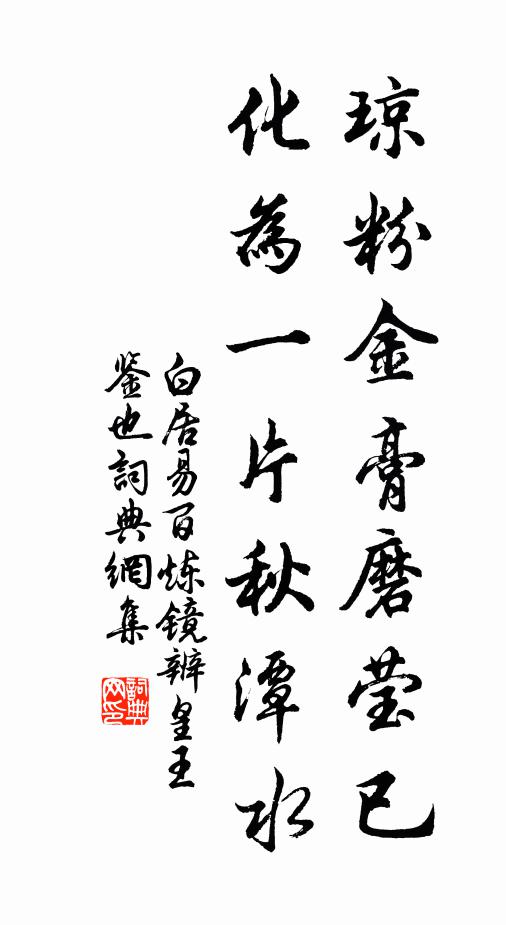 琼粉金膏磨莹已
化為一片秋潭水
白居易百炼镜辨皇王
鉴也詞典網集
詞典
网印